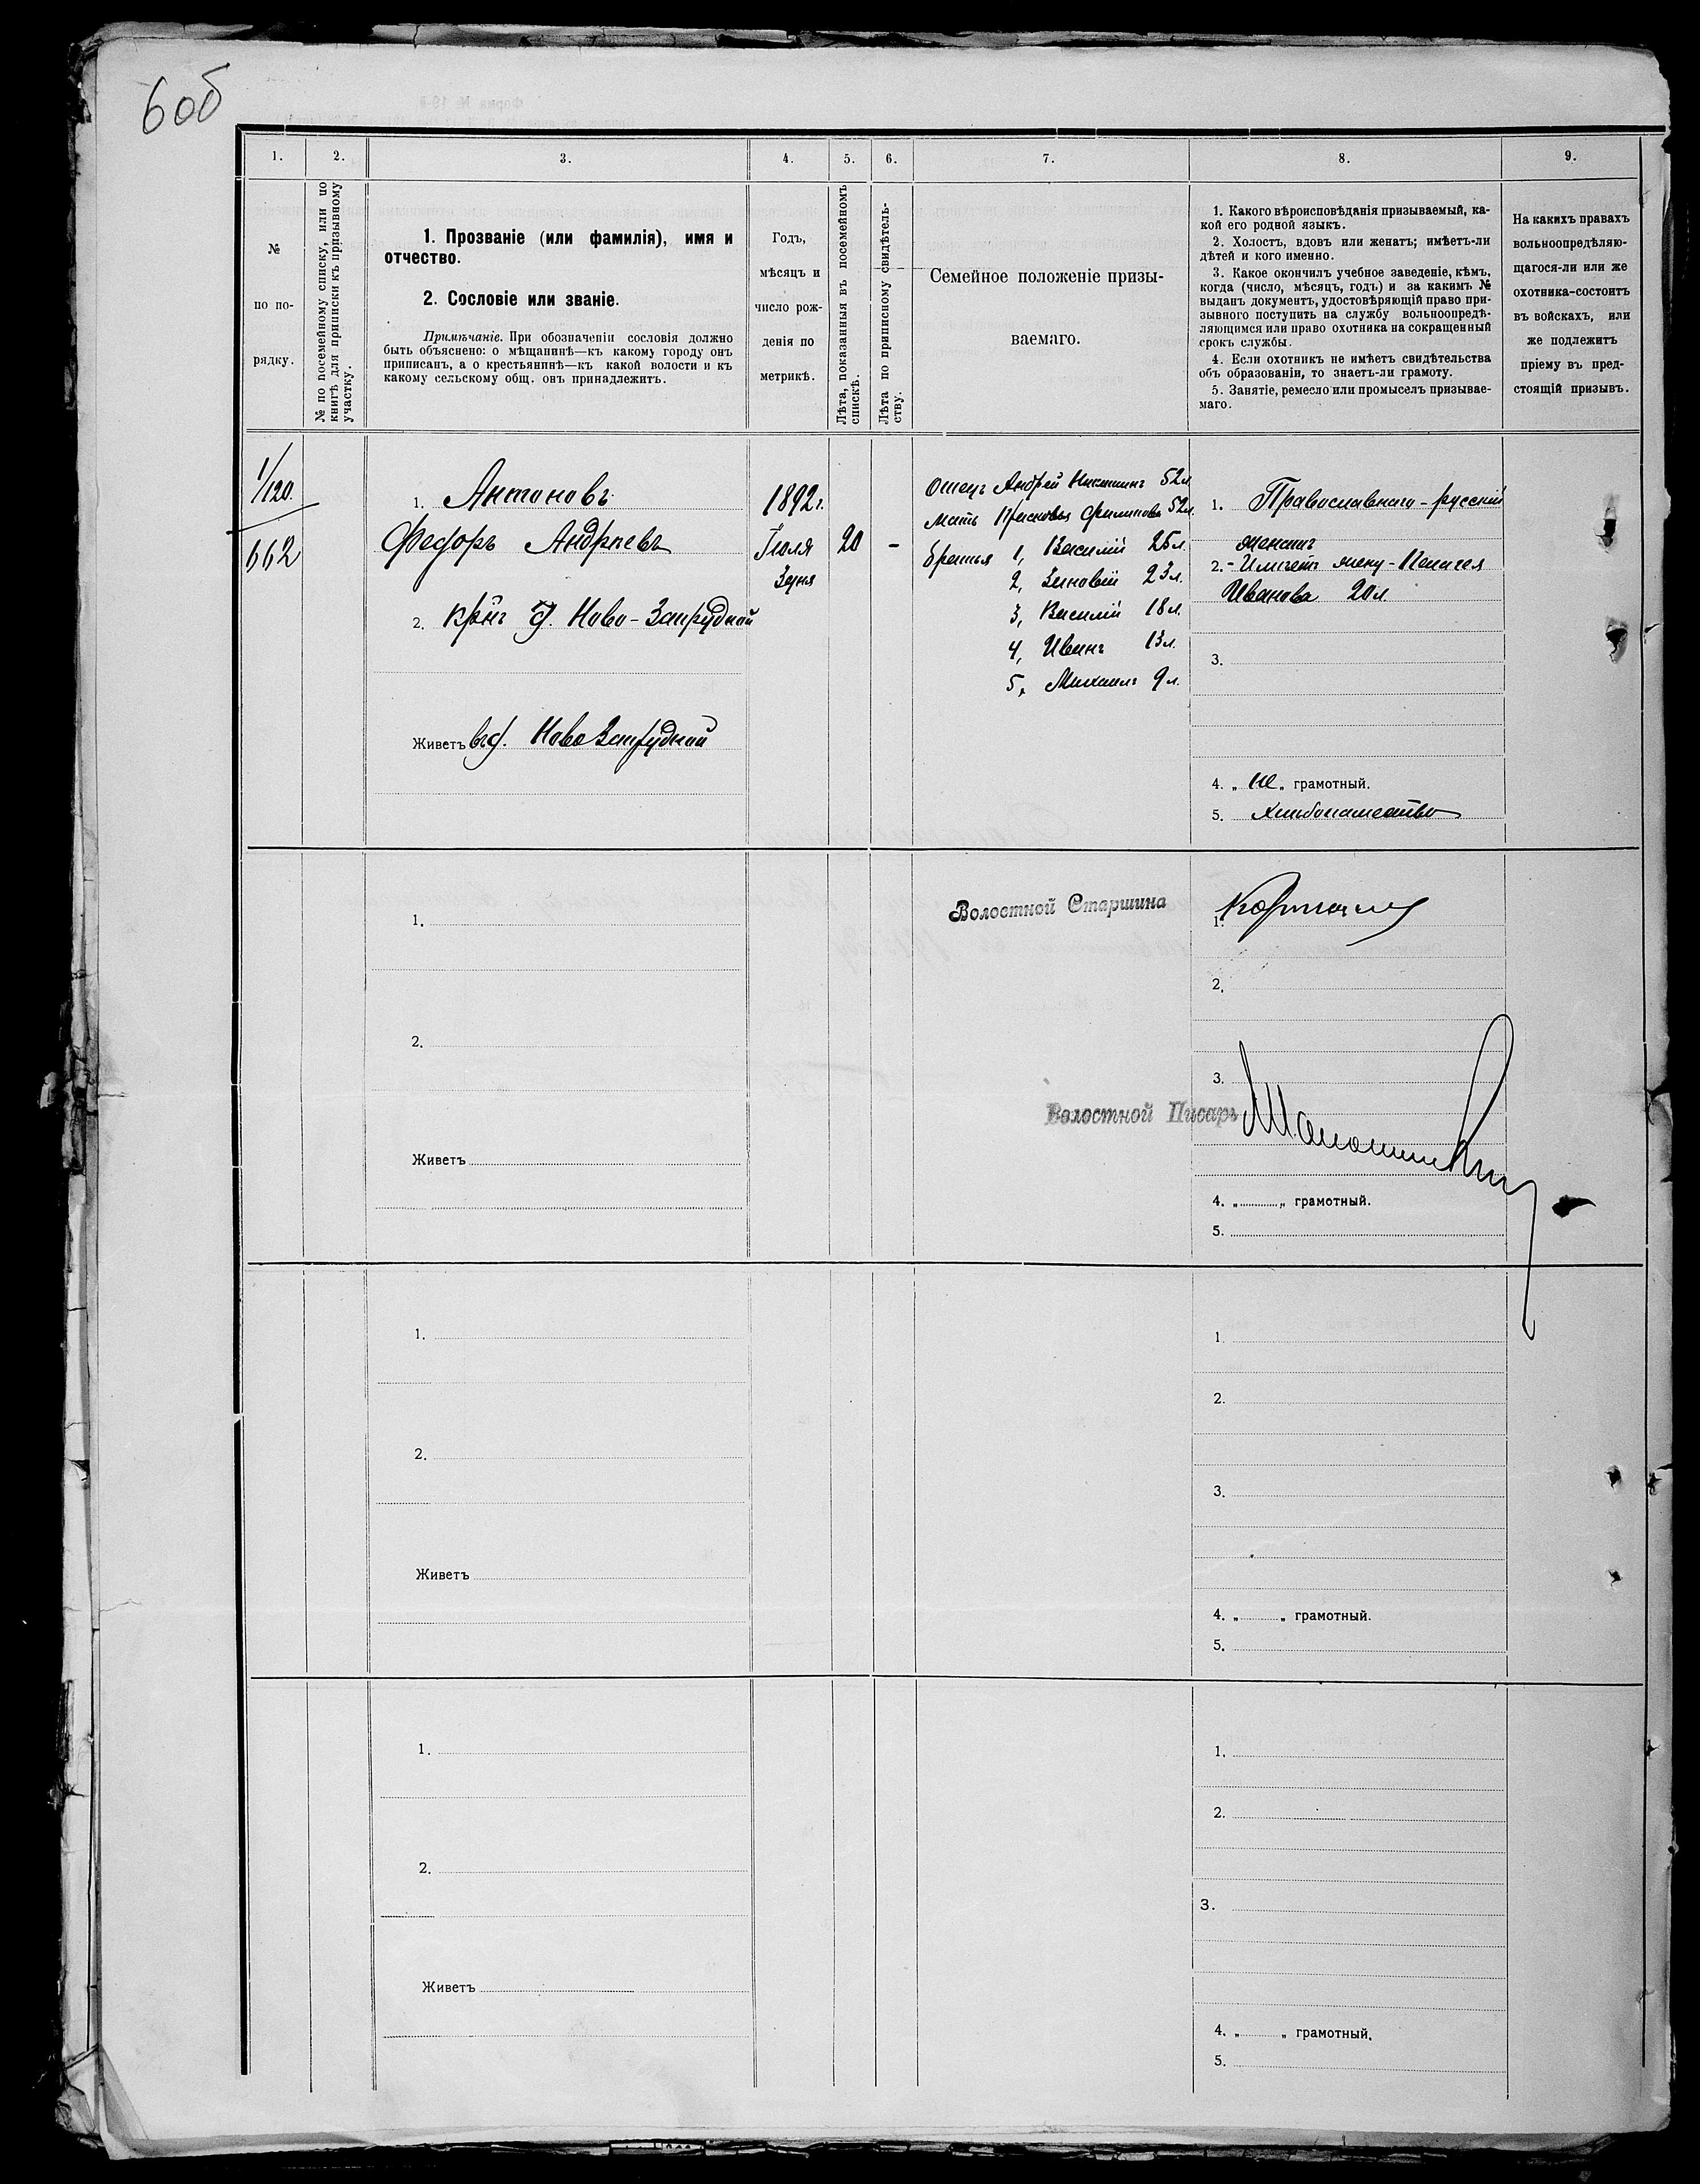 6об
1.
2.
3.
4.
5.
6.
7.
8.
9.
№
по по-
рядку.
№ по посемейному списку, или по
книгѣ для приписки къ призывному
участку.
1. Прозваніе (или фамилія), имя и
отчество.
2. Сословіе или званіе.
Примѣчаніе. При обозначеніи сословія должно
быть объяснено: о мѣщанинѣ—къ какому городу онъ
приписанъ, а о крестьянинѣ—къ какой волости и къ
какому сельскому общ. онъ принадлежитъ.
Годъ,
мѣсяцъ и
число рож-
денія по
метрикѣ.
Лѣта, показанныя въ посемейномъ
спискѣ.
Лѣта по приписному свидѣтель-
ству.
Семейное положеніе призы-
ваемаго.
1. Какого вѣроисповѣданія призываемый, ка-
кой его родной языкъ.
2. Холостъ, вдовъ или женатъ; имѣетъ-ли
дѣтей и кого именно.
3. Какое окончилъ учебное заведеніе, кѣмъ,
когда (число, мѣсяцъ, годъ) и за какимъ №
выданъ документъ, удостовѣряющій право при-
зывного поступить на службу вольноопредѣ-
ляющимся или право охотника на сокращенный
срокъ службы.
4. Если охотникъ не имѣетъ свидѣтельства
объ образованіи, то знаетъ-ли грамоту.
5. Занятіе, ремесло или промыселъ призывае-
маго.
На какихъ правахъ
вольноопредѣляю-
щагося-ли или же
охотника-состоитъ
въ войскахъ, или
же подлежитъ
пріему въ пред-
стоящій призывъ.
1/120.
662
1. Антоновъ
Федоръ Андреевъ
2. крнъ д. Ново-Запрудной
Живетъ въ д. Ново Запрудной
1892 г.
Іюля
3 дня
20
-
Отецъ Андрей Никитинъ 52 л
Мать Прасковья Филипова 52 л.
братья 1, Василій 25 л.
2, Зиновій 23 л.
3, Василій 18 л.
4, Иванъ 13 л.
5, Михаилъ 9 л.
1. Православнаго - русскій
женатъ
2. - Имѣетъ жену - Пелагея
Иванова 20 л.
3.
4. „ не „ грамотный.
5. Хлѣбопашество
1.
2.
Живетъ
Волостной Старшина
Волостной Писарь
1.
2.
3.
4. „ „ грамотный.
5.
1.
2.
Живетъ
1.
2.
3.
4. „ „ грамотный.
5.
1.
2.
Живетъ
1.
2.
3.
4. „ „ грамотный.
5.